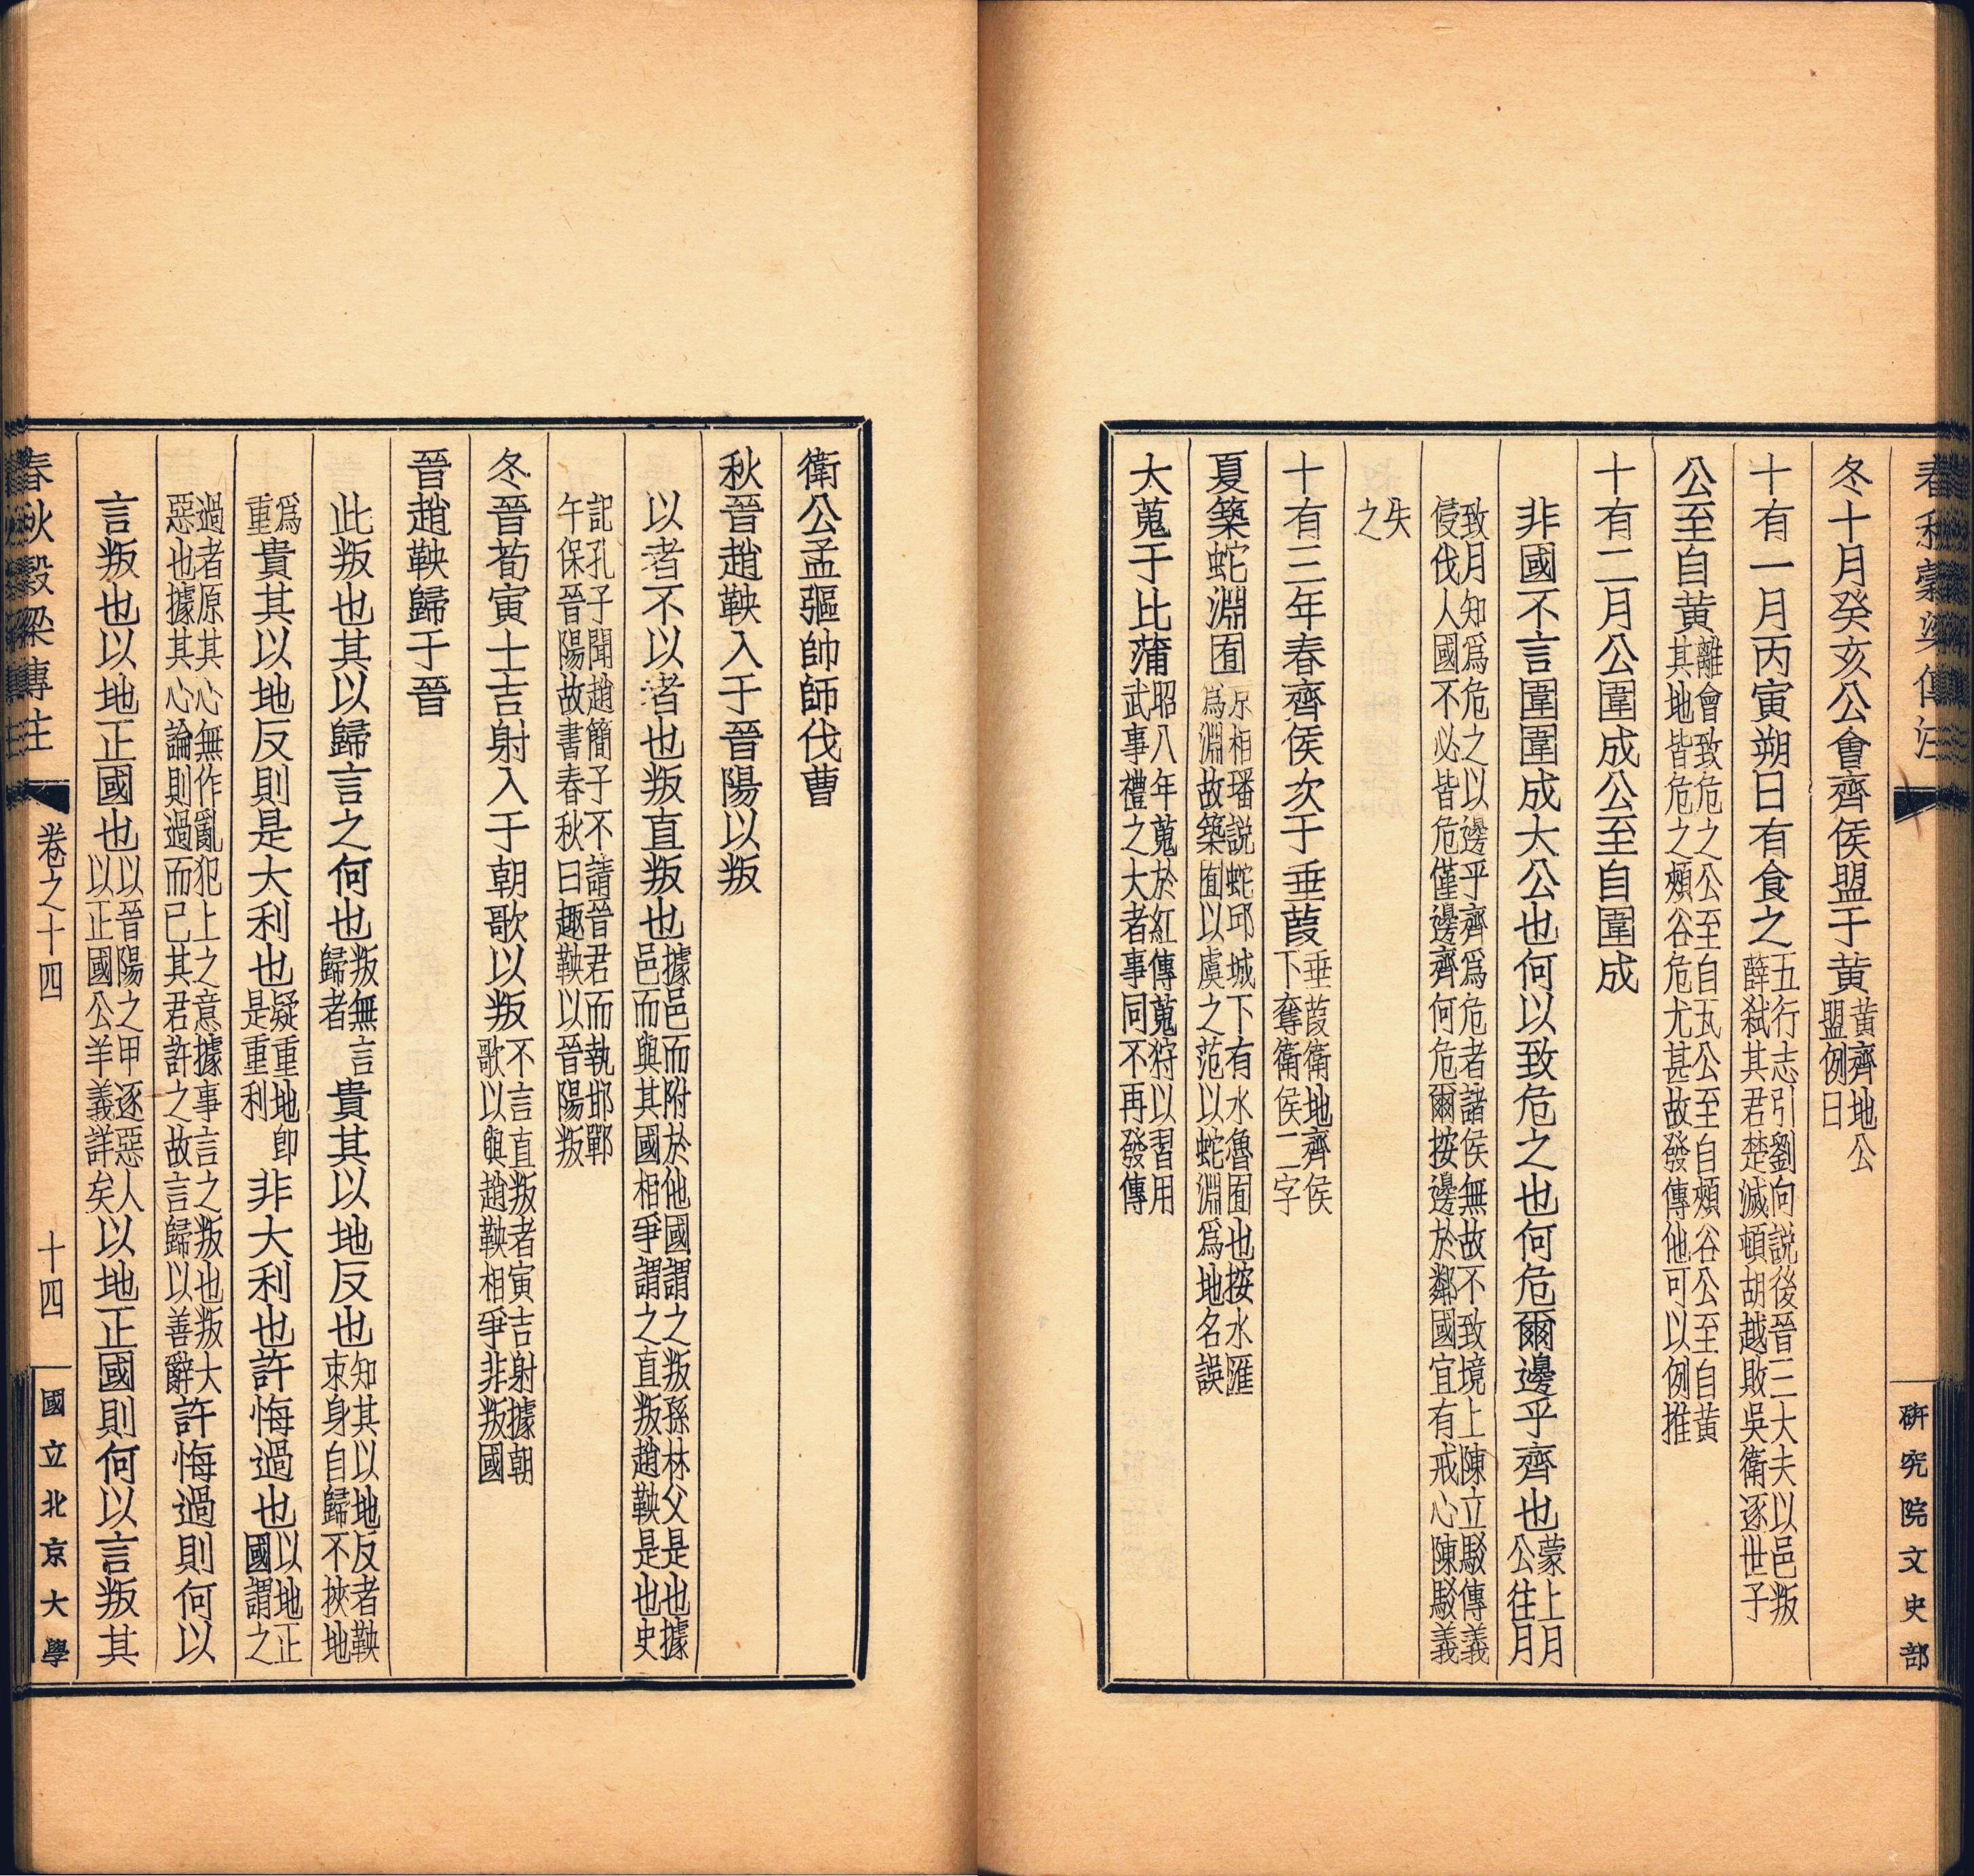 春秋穀梁傳注
研究院文史部
冬十月癸亥公會齊侯盟于黃黃齊地公盟例日
十有一月丙寅朔日有食之五行志引劉向說後晉三大夫以邑叛薛弑其君楚滅頓胡越敗吳衛逐世子
公至自黃離會致危之公至自瓦公至自頰谷公至自黃其地皆危之頰谷危尤甚故發傳他可以例推
十有二月公圍成公至自圍成
非國不言圍圍成大公也何以致危之也何危爾邊乎齊也蒙上月公往月
致月知爲危之以邊乎齊爲危者諸侯無故不致境上陳立駁傳義侵伐人國不必皆危僅邊齊何危爾按邊於鄰國宜有戒心陳駁義
失之
十有三年春齊侯次于垂葭垂葭衛地齊侯下奪衛侯二字
夏築蛇淵囿京相璠說蛇邱城下有水魯囿也按水匯爲淵故築囿以虞之范以蛇淵爲地名誤
大蒐于比蒲昭八年蒐於紅傳蒐狩以習用武事禮之大者事同不再發傳
衛公孟彄帥師伐曹
秋晉趙鞅入于晉陽以叛
以者不以者也叛直叛也據邑而附於他國謂之叛孫林父是也據邑而與其國相爭謂之直叛趙鞅是也史
記孔子聞趙簡子不請晉君而執邯鄲午保晉陽故書春秋曰趙鞅以晉陽叛
冬晉荀寅士吉射入于朝歌以叛不言直叛者寅吉射據朝歌以與趙鞅相爭非叛國
晉趙鞅歸于晉
此叛也其以歸言之何也叛無言歸者貴其以地反也知其以地反者鞅束身自歸不挾地
爲重貴其以地反則是大利也疑重地卽是重利非大利也許悔過也以地正國謂之
過者原其心無作亂犯上之意據事言之叛也叛大惡也據其心論則過而已其君許之故言歸以善辭許悔過則何以
言叛也以地正國也以晉陽之甲逐惡人以正國公羊義詳矣以地正國則何以言叛其
春秋穀梁傳注
卷之十四
十四
國立北京大學